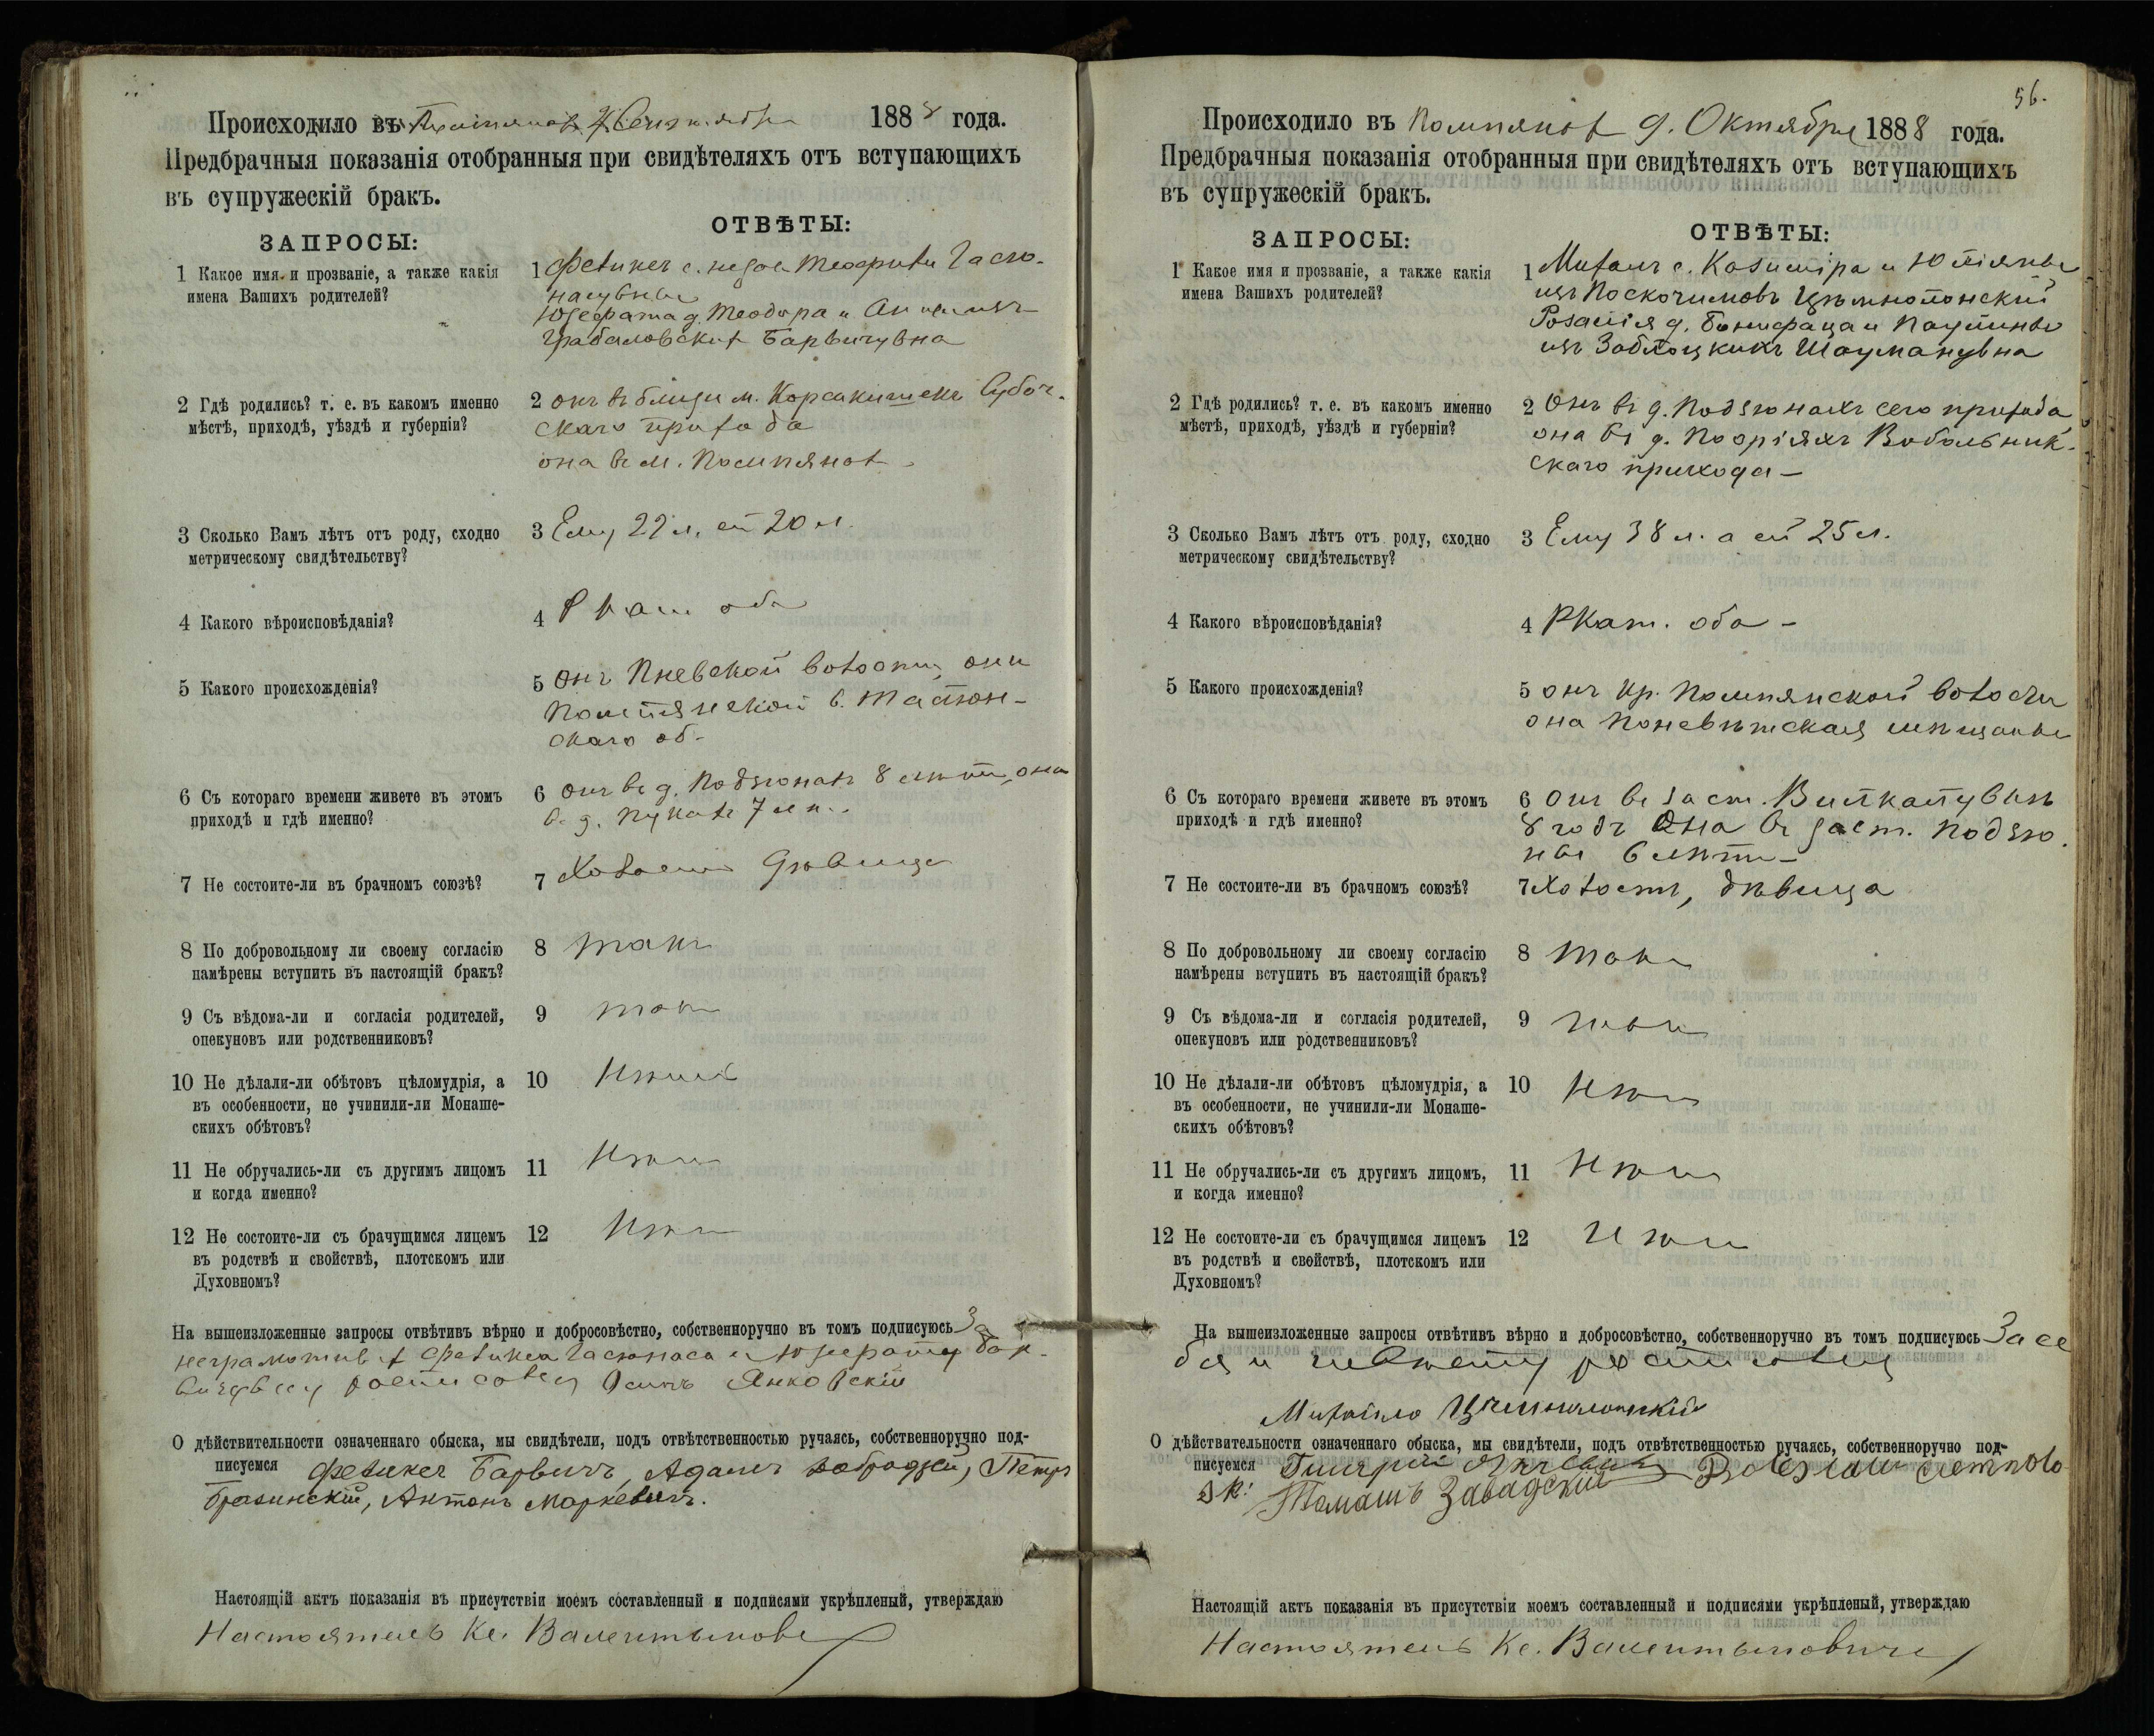 Происходило въ 1888 года.
Предбрачныя показанія отобранныя при свидѣтеляхъ отъ вступающихъ
въ супружескій бракъ.
ЗАПРОСЫ:
ОТВѢТЫ:
1 Какое имя и прозваніе, а также какія
имена Вашихъ родителей?
1 Феликсъ с.
Юзефата д. Теодора и
2 Гдѣ родились? т. е. въ какомъ именно
мѣстѣ, приходѣ, уѣздѣ и губерніи?
2 онъ вблизи м. Корсакишекъ Субоч-
скаго прихода
она въ м. Помпянах
3 Сколько Вамъ лѣтъ отъ роду, сходно
метрическому свидѣтельству?
3 Ему 22 л. ей 20 л.
4 Какого вѣроисповѣданія?
4 Р Кат оба
5 Какого происхожденія?
5 онъ Пневской волости, она
Помпянской в.
скаго об.
6 Съ котораго времени живете въ этомъ
приходѣ и гдѣ именно?
6 онъ въ д. 8 лѣтъ, она
в д. 7 л.
7 Не состоите-ли въ брачномъ союзѣ?
7 Холостъ Дѣвица
8 По добровольному ли своему согласію
намѣрены вступить въ настоящій бракъ?
8 такъ
9 Съ вѣдома-ли и согласія родителей,
опекуновъ или родственниковъ?
9 такъ
10 Не дѣлали-ли обѣтовъ цѣломудрія, а
въ особенности, не учинили-ли Монаше-
скихъ обѣтовъ?
10 Нѣтъ
11 Не обручались-ли съ другимъ лицомъ
и когда именно?
11 Нѣтъ
12 Не состоите-ли съ брачущимся лицемъ
въ родствѣ и свойствѣ, плотскомъ или
Духовномъ?
12 Нѣтъ
На вышеизложенные запросы отвѣтивъ вѣрно и добросовѣстно, собственноручно въ томъ подписуюсь За
неграмотныхъ Феликса Гасюнаса и Юзефату Бар-
росписался Янковскій
О дѣйствительности означеннаго обыска, мы свидѣтели, подъ отвѣтственностью ручаясь, собственноручно под-
писуемся Феликсъ Барвичъ, Адамъ Петръ
Антонъ Маркевичъ.
Настоящій актъ показанія въ присутствіи моемъ составленный и подписями укрѣпленый, утверждаю
Настоятель Кс.
56.
Происходило въ Помпянах 9. Октября 1888 года.
Предбрачныя показанія отобранныя при свидѣтеляхъ отъ вступающихъ
въ супружескій бракъ.
ЗАПРОСЫ:
ОТВѢТЫ:
1 Какое имя и прозваніе, а также какія
имена Вашихъ родителей?
1 Михаилъ с. Казиміра и Юліяны
изъ
Розалія д. Бонифаца и Паулины
изъ Заблоцкихъ Шауманувна
2 Гдѣ родились? т. е. въ какомъ именно
мѣстѣ, приходѣ, уѣздѣ и губерніи?
2 Онъ въ д. Подзюнахъ сего прихода
она въ д. Вобольник-
скаго прихода —
3 Сколько Вамъ лѣтъ отъ роду, сходно
метрическому свидѣтельству?
3 Ему 38 л. а ей 25 л.
4 Какого вѣроисповѣданія?
4 РКат. оба —
5 Какого происхожденія?
5 онъ кр. Помпянской волости
она Поневѣжская мѣщанка
6 Съ котораго времени живете въ этомъ
приходѣ и гдѣ именно?
6 Онъ въ заст.
8 годъ Она въ заст. Подзю-
ны 6 лѣтъ —
7 Не состоите-ли въ брачномъ союзѣ?
7 Холостъ, дѣвица
8 По добровольному ли своему согласію
намѣрены вступить въ настоящій бракъ?
8 такъ
9 Съ вѣдома-ли и согласія родителей,
опекуновъ или родственниковъ?
9 такъ
10 Не дѣлали-ли обѣтовъ цѣломудрія, а
въ особенности, не учинили-ли Монаше-
скихъ обѣтовъ?
10 Нѣтъ
11 Не обручались-ли съ другимъ лицомъ,
и когда именно?
11 Нѣтъ
12 Не состоите-ли съ брачущимся лицемъ
въ родствѣ и свойствѣ, плотскомъ или
Духовномъ?
12 Нѣтъ
На вышеизложенные запросы отвѣтивъ вѣрно и добросовѣстно, собственноручно въ томъ подписуюсь За се
бя и
О дѣйствительности означеннаго обыска, мы свидѣтели, подъ отвѣтственностью ручаясь, собственноручно под-
писуемся
Томашъ Завадскій
Настоящій актъ показанія въ присутствіи моемъ составленный и подписями укрѣпленый, утверждаю
Настоятель Кс. Валентыновичъ